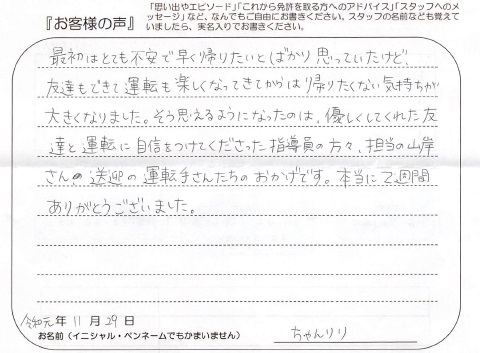 『お客様の声』
「思い出やエピソード」「これから免許を取る方へのアドバイス」「スタッフへのメ
ッセージ」など、なんでもご自由にお書きください。スタッフの名前なども覚えて
いましたら、実名入りでお書きください。
最初はとても不安で早く帰りたいとばかり思っていたけど、
友達もできて運転も楽しくなってきてからは帰りたくない気持ちが
大きくなりました。そう思えるようになったのは、優しくしてくれた友
達と運転に自信をつけてくださった指導員の方々、担当の山岸
さん、送迎の運転手さんたちのおかげです。本当に2週間
ありがとうございました。
令和元年11月29日
お名前(イニシャル・ペンネームでもかまいません)
ちゃんりり